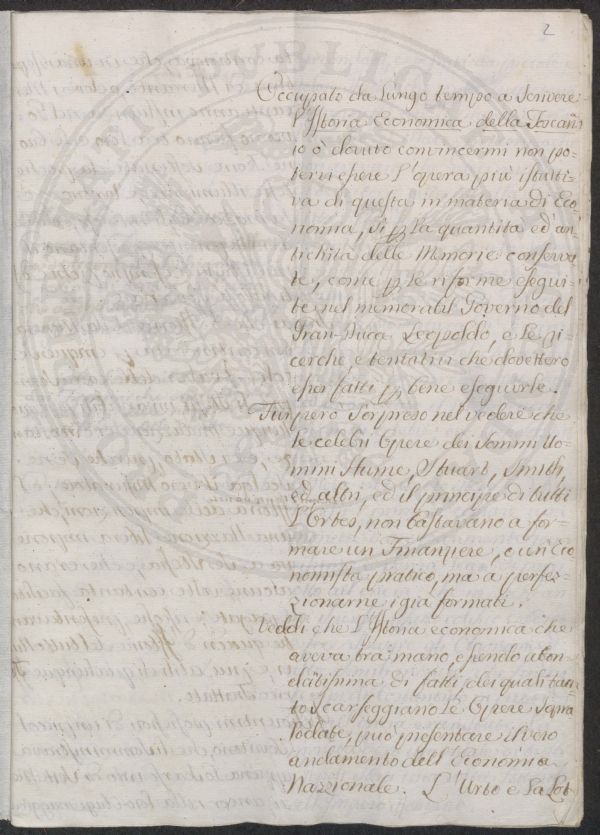 2
Occupato da lungo tempo a scrivere
l'Istoria Economica della Toscana
io ò dovuto convincermi non po-
tervi essere l'opera più istrutti-
va di questa in materia di Eco
nomia, sì p la quantita ed an
tichità delle Memorie conserva
te, come p le riforme esegui-
te nel memorabil Governo del
Gran-Duca Leopoldo, e le ri-
cerche, e tentativi che dovettero
esser fatti p bene eseguirle.
Fui pero sorpreso nel vedere che
le celebri Opere dei sommi Uo-
mini Hume, Stuart, Smith
ed altri, ed il principe di tutti
l'Orbes, non bastavano a for-
mare un Finanziere, o un Eco
nomista pratico, ma a perfe-
zionarne i già formati.
Veddi che l'Istoria economica che
aveva tra mano, essendo abon
dantissima di fatti dei quali tan
to scarseggiano le Opere sopra
lodate, può presentare il vero
andamento dell'Economia
Nazzionale. L'Urto e la Lot